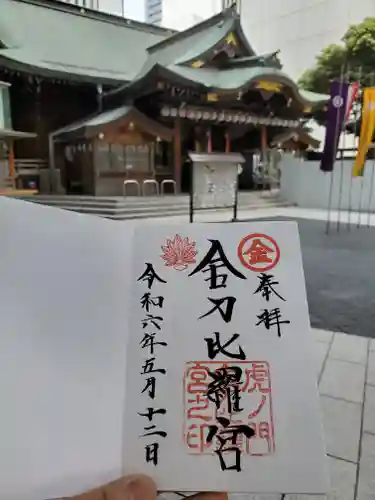 金
奉拝
金刀比羅宮
虎ノ門
宮之印
令和六年五月十二日